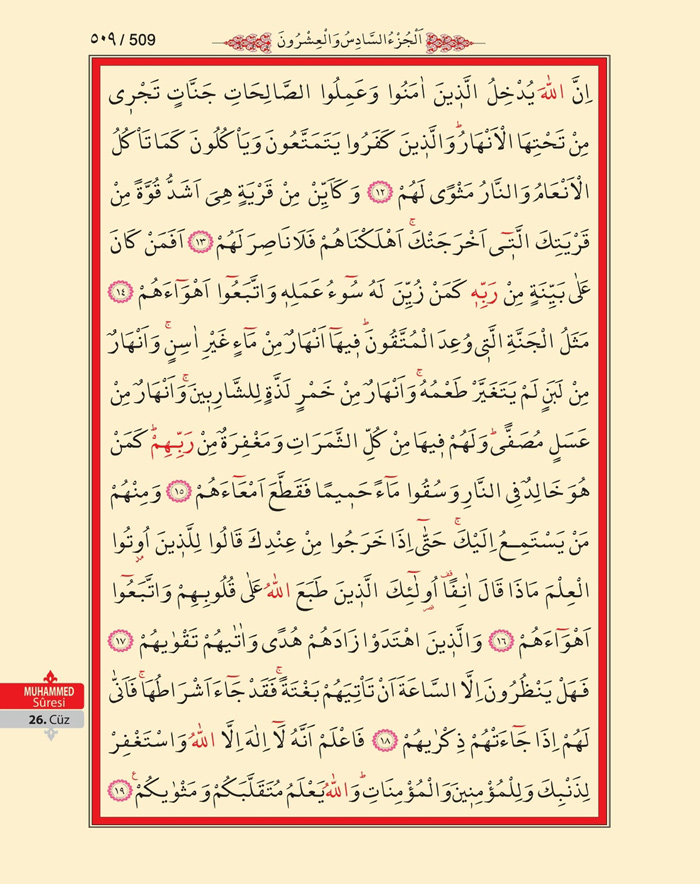 ٥٠٩ / 509
اَلْجُزْءُ السَّادِسُ وَالْعِشْرُونَ
اِنَّ اللّٰهَ يُدْخِلُ الَّذ۪ينَ اٰمَنُوا وَعَمِلُوا الصَّالِحَاتِ جَنَّاتٍ تَجْر۪ي
مِنْ تَحْتِهَا الْاَنْهَارُۜ وَالَّذ۪ينَ كَفَرُوا يَتَمَتَّعُونَ وَيَأْكُلُونَ كَمَا تَأْكُلُ
الْاَنْعَامُ وَالنَّارُ مَثْوًى لَهُمْ ﴿١٢﴾ وَكَاَيِّنْ مِنْ قَرْيَةٍ هِيَ اَشَدُّ قُوَّةً مِنْ
قَرْيَتِكَ الَّت۪ٓي اَخْرَجَتْكَۚ اَهْلَكْنَاهُمْ فَلَا نَاصِرَ لَهُمْ ﴿١٣﴾ اَفَمَنْ كَانَ
عَلٰى بَيِّنَةٍ مِنْ رَبِّه۪ كَمَنْ زُيِّنَ لَهُ سُٓوءُ عَمَلِه۪ وَاتَّبَعُٓوا اَهْوَٓاءَهُمْ ﴿١٤﴾
مَثَلُ الْجَنَّةِ الَّت۪ي وُعِدَ الْمُتَّقُونَۜ ف۪يهَٓا اَنْهَارٌ مِنْ مَٓاءٍ غَيْرِ اٰسِنٍۚ وَاَنْهَارٌ
مِنْ لَبَنٍ لَمْ يَتَغَيَّرْ طَعْمُهُۚ وَاَنْهَارٌ مِنْ خَمْرٍ لَذَّةٍ لِلشَّارِب۪ينَۚ وَاَنْهَارٌ مِنْ
عَسَلٍ مُصَفًّىۜ وَلَهُمْ ف۪يهَا مِنْ كُلِّ الثَّمَرَاتِ وَمَغْفِرَةٌ مِنْ رَبِّهِمْۜ كَمَنْ
هُوَ خَالِدٌ فِي النَّارِ وَسُقُوا مَٓاءً حَم۪يمًا فَقَطَّعَ اَمْعَٓاءَهُمْ ﴿١٥﴾ وَمِنْهُمْ
مَنْ يَسْتَمِعُ اِلَيْكَۚ حَتّٰٓى اِذَا خَرَجُوا مِنْ عِنْدِكَ قَالُوا لِلَّذ۪ينَ اُو۫تُوا
الْعِلْمَ مَاذَا قَالَ اٰنِفًا۠ اُو۬لٰٓئِكَ الَّذ۪ينَ طَبَعَ اللّٰهُ عَلٰى قُلُوبِهِمْ وَاتَّبَعُٓوا
اَهْوَٓاءَهُمْ ﴿١٦﴾ وَالَّذ۪ينَ اهْتَدَوْا زَادَهُمْ هُدًى وَاٰتٰيهُمْ تَقْوٰيهُمْ ﴿١٧﴾
فَهَلْ يَنْظُرُونَ اِلَّا السَّاعَةَ اَنْ تَأْتِيَهُمْ بَغْتَةًۚ فَقَدْ جَٓاءَ اَشْرَاطُهَاۚ فَاَنّٰى
لَهُمْ اِذَا جَٓاءَتْهُمْ ذِكْرٰيهُمْ ﴿١٨﴾ فَاعْلَمْ اَنَّهُ لَٓا اِلٰهَ اِلَّا اللّٰهُ وَاسْتَغْفِرْ
لِذَنْبِكَ وَلِلْمُؤْمِن۪ينَ وَالْمُؤْمِنَاتِۜ وَاللّٰهُ يَعْلَمُ مُتَقَلَّبَكُمْ وَمَثْوٰيكُمْ۟ ﴿١٩﴾
MUHAMMED
Sûresi
26. Cüz